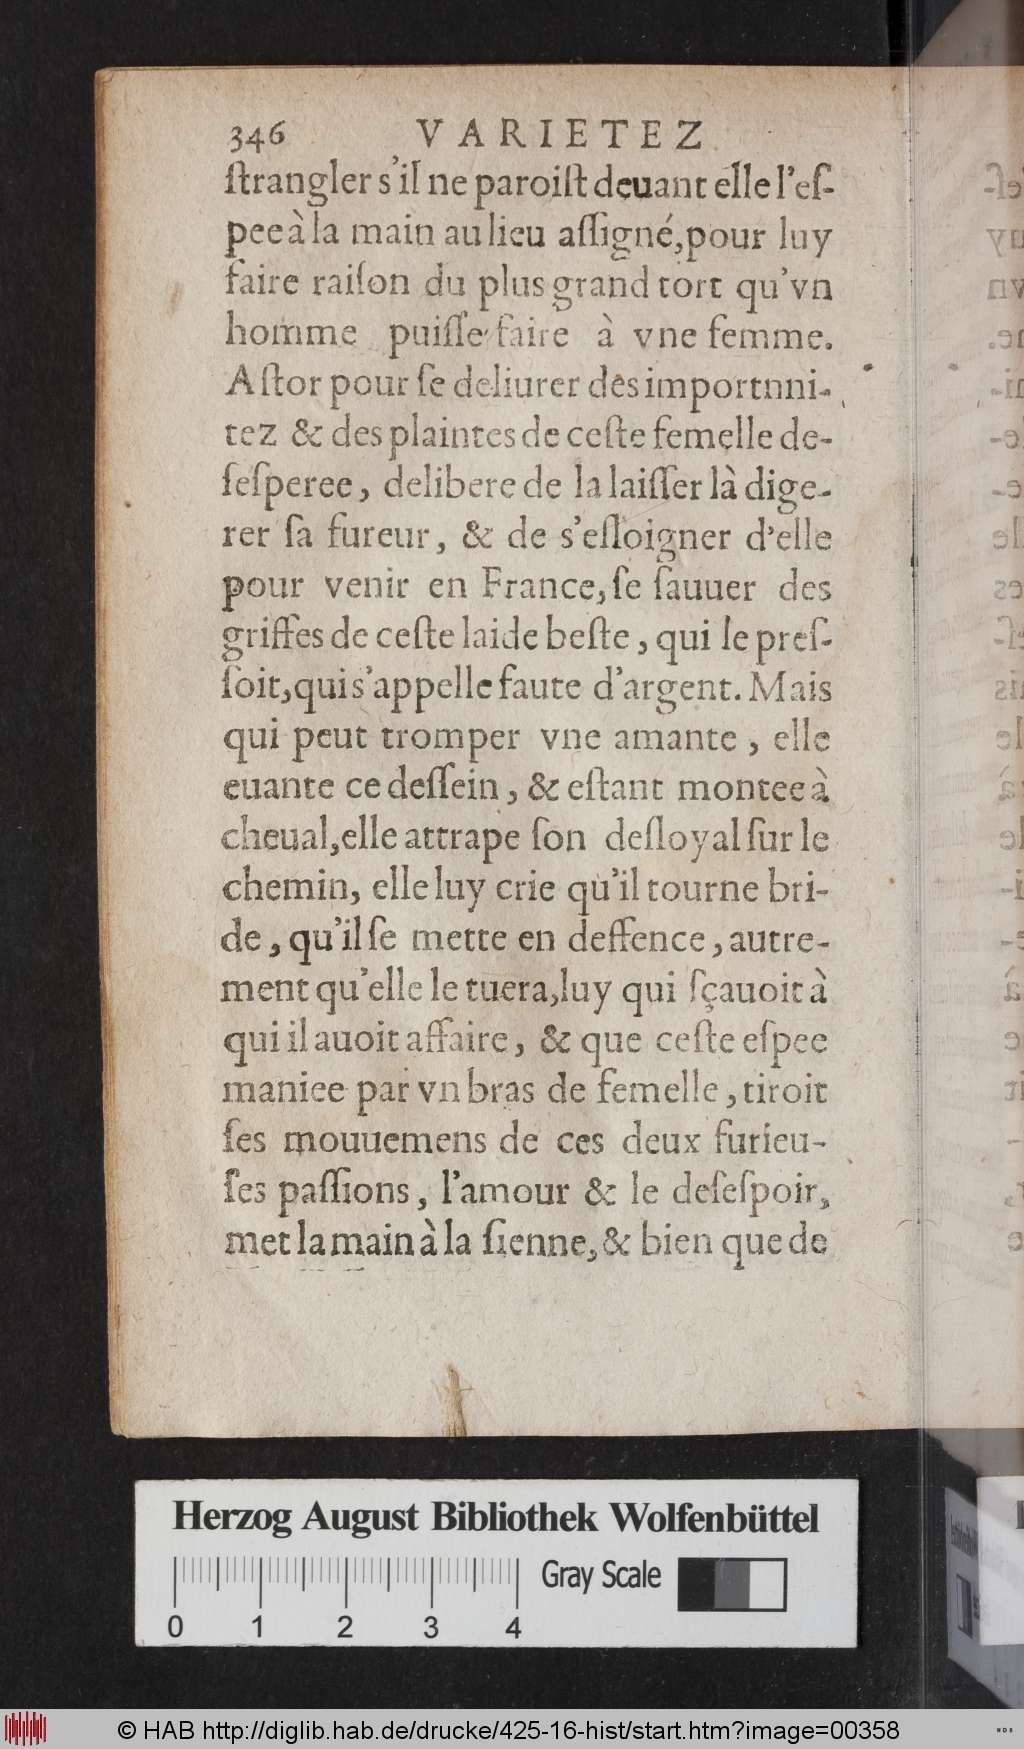 346 VARIETEZ
ſtrangler s'il ne paroiſt deuant elle l'eſ-
pee à la main au lieu aſſigné, pour luy
faire raiſon du plus grand tort qu'vn
homme puiſſe faire à vne femme.
Aſtor pour ſe deliurer des importnni-
tez & des plaintes de ceſte femelle de-
ſeſperee, delibere de la laiſſer là dige-
rer ſa fureur, & de s'eſloigner d'elle
pour venir en France, ſe ſauuer des
griffes de ceſte laide beſte, qui le preſ-
ſoit, qui s'appelle faute d'argent. Mais
qui peut tromper vne amante, elle
euante ce deſſein, & eſtant montee à
cheual, elle attrape ſon deſloyal ſur le
chemin, elle luy crie qu'il tourne bri-
de, qu'il ſe mette en deffence, autre-
ment qu'elle le tuera, luy qui ſçauoit à
qui il auoit affaire, & que ceſte eſpee
maniee par vn bras de femelle, tiroit
ſes mouuemens de ces deux furieu-
ſes paſſions, l'amour & le deſeſpoir,
met la main à la ſienne, & bien que de
Herzog August Bibliothek Wolfenbüttel
Gray Scale
0 1 2 3 4
© HAB http://diglib.hab.de/drucke/425-16-hist/start.htm?image=00358